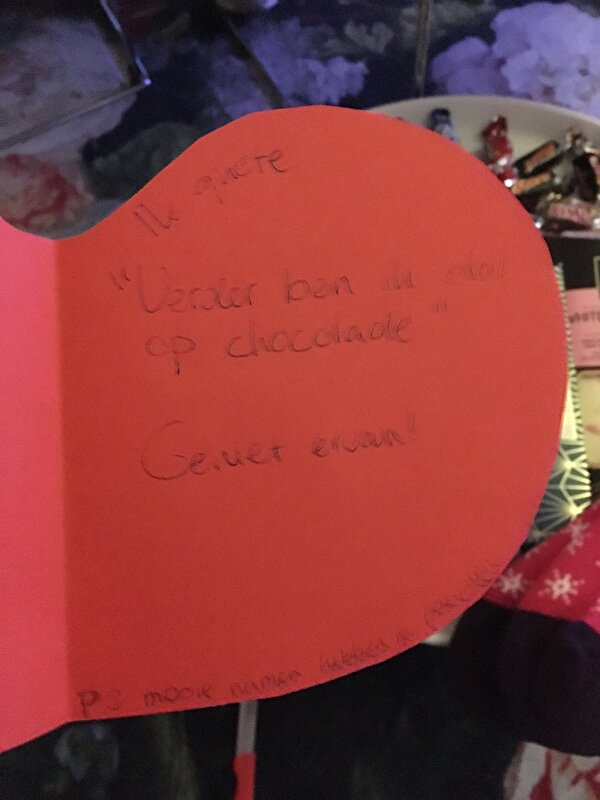 Ik quote
"Verder ben ik
op chocolade"
Geniet ervan!
PS mooie namen hebben
WHITE